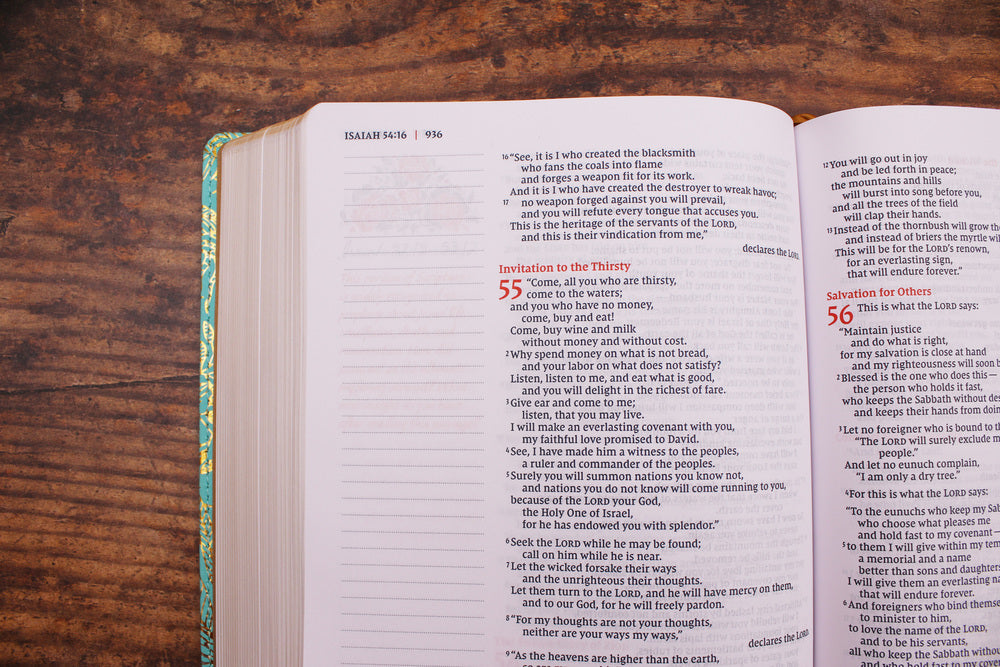 ISAIAH 54:16 | 936
16 “See, it is I who created the blacksmith
who fans the coals into flame
and forges a weapon fit for its work.
And it is I who have created the destroyer to wreak havoc;
17 no weapon forged against you will prevail,
and you will refute every tongue that accuses you.
This is the heritage of the servants of the LORD,
and this is their vindication from me,”
declares the LORD.
Invitation to the Thirsty
55 “Come, all you who are thirsty,
come to the waters;
and you who have no money,
come, buy and eat!
Come, buy wine and milk
without money and without cost.
2 Why spend money on what is not bread,
and your labor on what does not satisfy?
Listen, listen to me, and eat what is good,
and you will delight in the richest of fare.
3 Give ear and come to me;
listen, that you may live.
I will make an everlasting covenant with you,
my faithful love promised to David.
4 See, I have made him a witness to the peoples,
a ruler and commander of the peoples.
5 Surely you will summon nations you know not,
and nations you do not know will come running to you,
because of the LORD your God,
the Holy One of Israel,
for he has endowed you with splendor.”
6 Seek the LORD while he may be found;
call on him while he is near.
7 Let the wicked forsake their ways
and the unrighteous their thoughts.
Let them turn to the LORD, and he will have mercy on them,
and to our God, for he will freely pardon.
8 “For my thoughts are not your thoughts,
neither are your ways my ways,”
declares the LORD.
9 “As the heavens are higher than the earth,
12 You will go out in joy
and be led forth in peace;
the mountains and hills
will burst into song before you,
and all the trees of the field
will clap their hands.
13 Instead of the thornbush will grow the
and instead of briers the myrtle wi
This will be for the LORD’s renown,
for an everlasting sign,
that will endure forever.”
Salvation for Others
56 This is what the LORD says:
“Maintain justice
and do what is right,
for my salvation is close at hand
and my righteousness will soon b
2 Blessed is the one who does this—
the person who holds it fast,
who keeps the Sabbath without des
and keeps their hands from doin
3 Let no foreigner who is bound to th
“The LORD will surely exclude m
people.”
And let no eunuch complain,
“I am only a dry tree.”
4 For this is what the LORD says:
“To the eunuchs who keep my Sab
who choose what pleases me
and hold fast to my covenant—
5 to them I will give within my tem
a memorial and a name
better than sons and daughters
I will give them an everlasting na
that will endure forever.
6 And foreigners who bind themse
to minister to him,
to love the name of the LORD,
and to be his servants,
all who keep the Sabbath withou
and who hold fast to my cove